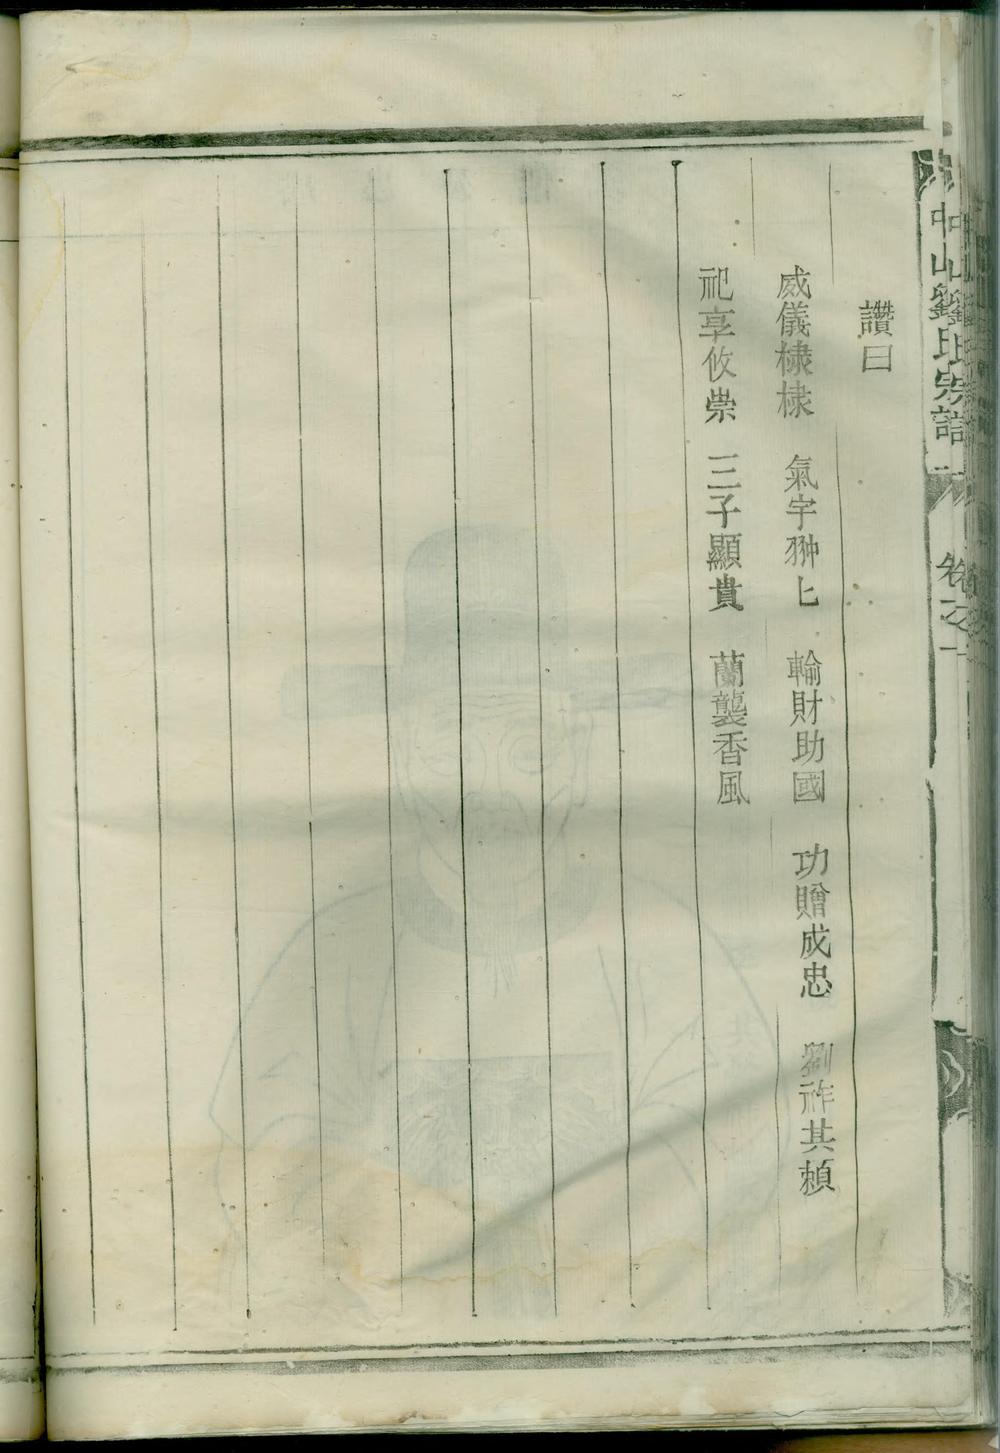 中山劉氏宗譜
卷之一
讚曰
威儀棣棣 氣宇翀匕 輸財助國 功贈成忠 劉祚其頼
祀享攸崇 三子顯貴 蘭襲香風